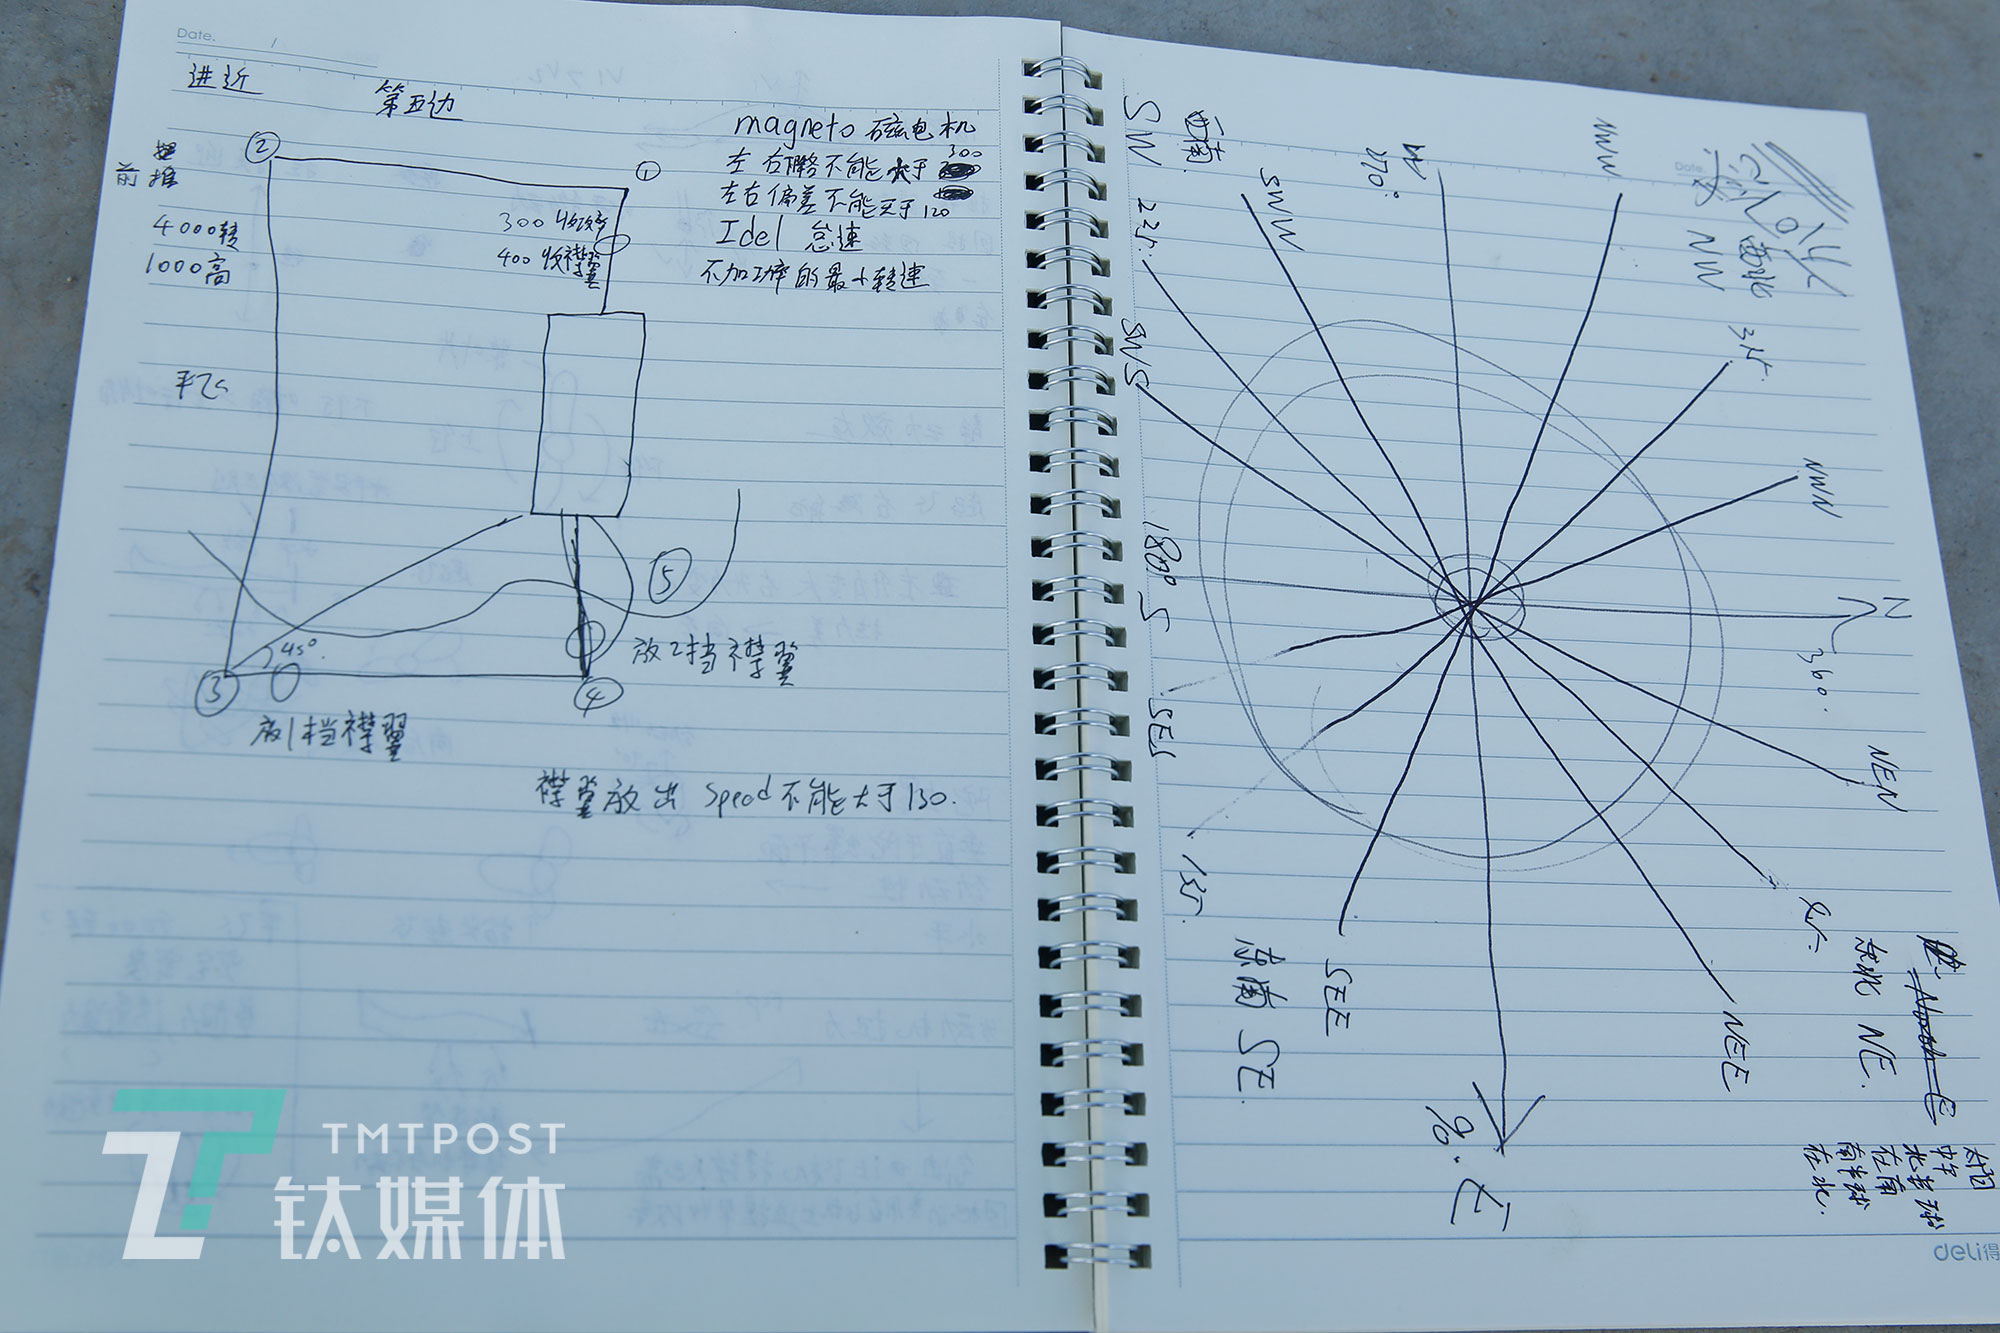 Date.
进近
第五边
②
①
前推
4000转
1000高
平飞
300收
400收襟翼
magneto 磁电机
左右 不能大于 300
左右偏差不能大于120
Idel 怠速
不加功率的最小转速
45°
③
④
⑤
放1挡襟翼
放2挡襟翼
襟翼放出 Speed 不能大于130.
TMTPOST
钛媒体
SW
西南
225.
SWW
270.
NWW
西北
NW
315.
SWS
NWN
180° S
N
360.
SES
NEN
135.
东南 SE.
SEE
NEE
东北 NE.
North E
90. E
中午
北半球
在南
南半球
在北.
Date
deli得